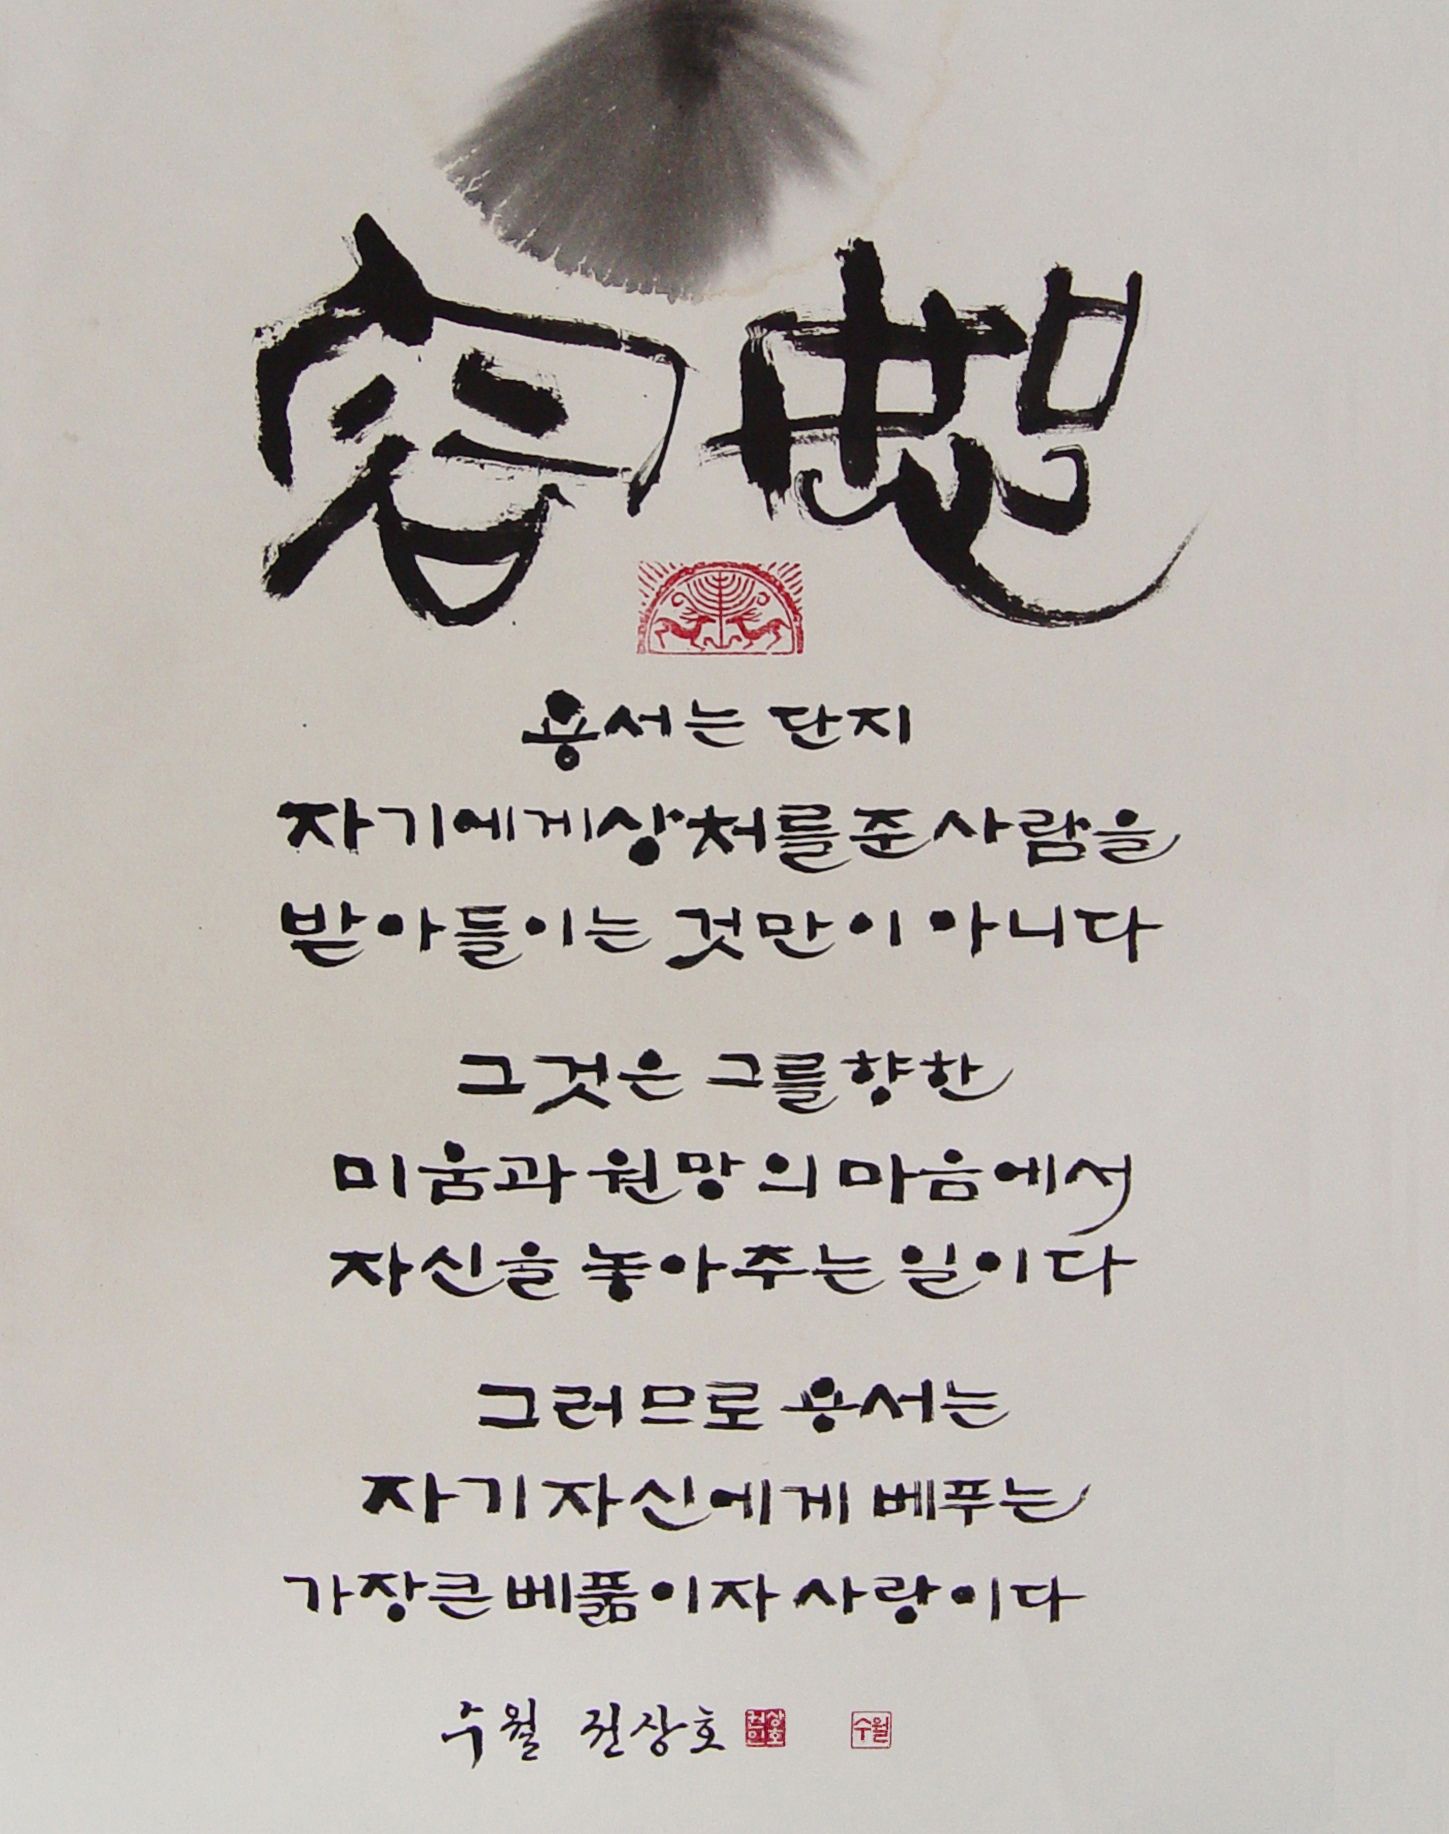 容恕
용서는 단지
자기에게 상처를 준 사람을
받아들이는 것만이 아니다
그것은 그를 향한
미움과 원망의 마음에서
자신을 놓아주는 일이다
그러므로 용서는
자기 자신에게 베푸는
가장 큰 베풂이자 사랑이다
수월 권상호
수월